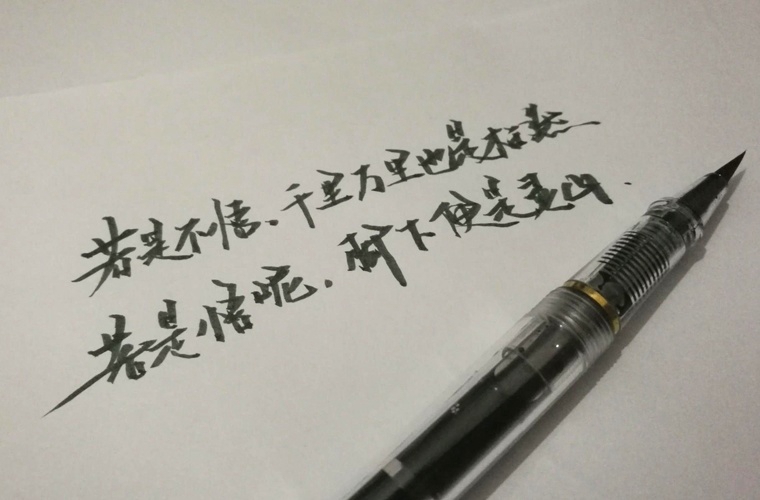 若是不悟、千里万里也是枉然
若是悟呢，脚下便是灵山.